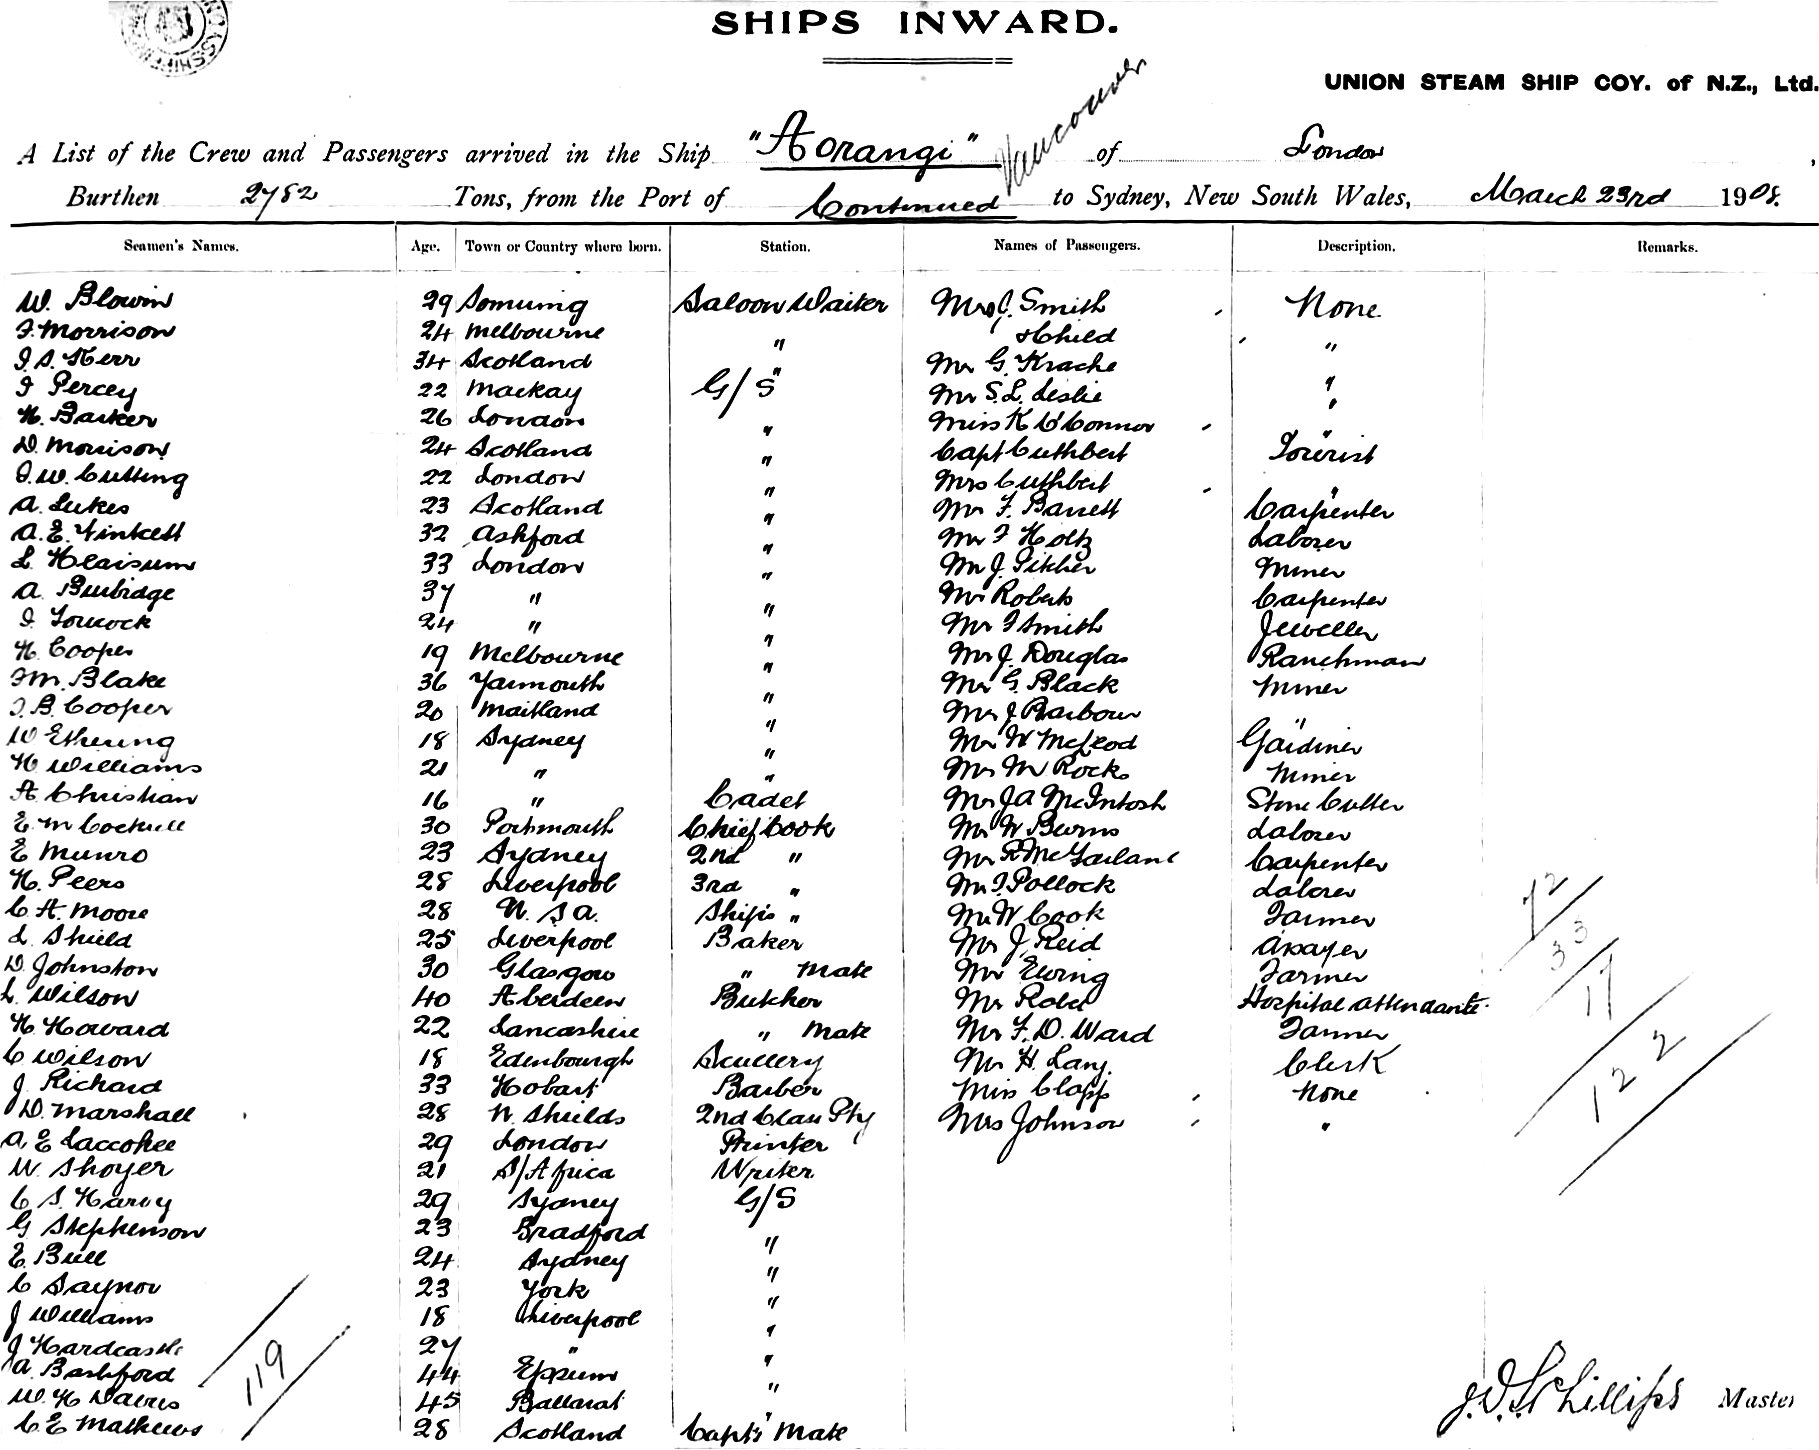 SHIPS INWARD.
UNION STEAM SHIP COY. of N.Z., Ltd.
Vancouver
A List of the Crew and Passengers arrived in the Ship "Aorangi" of London,
Burthen 2782 Tons, from the Port of Continued to Sydney, New South Wales, March 23rd 1908.
Seamen's Names. Age. Town or Country where born. Station. Names of Passengers. Description. Remarks.
W. Blowin 29 Saloon Waiter Mrs J. Smith None.
F. Morrison 24 Melbourne " & Child "
J. S. Kerr 34 Scotland " Mr G. Krache "
J Percey 22 Mackay G/S Mr S. L. Leslie "
H. Barker 26 London " Miss K O'Connor "
D. Morrison 24 Scotland " Capt Cuthbert Tourist
J. W. Cutting 22 London " Mrs Cuthbert "
A. Lukes 23 Scotland " Mr F. Barrett Carpenter
A. E. 32 Ashford " Mr F Holtz Laborer
L. 33 London " Mr J. Pilcher Miner
A. Burbidge 37 " " Mr Roberts Carpenter
J. 24 " " Mr F Smith Jeweller
H. Cooper 19 Melbourne " Mr J. Douglas Ranchman
M. Blake 36 Yarmouth " Mr G. Black Miner
J. B. Cooper 20 Maitland " Mr J Barbour "
W Ethering 18 Sydney " Mr W McLeod Gardiner
H Williams 21 " " Mr M Rocks Miner
A. Christian 16 " Cadet Mr J A McIntosh Stone Cutter
E. M Cockrill 30 Portmouth Chief Cook Mr W Burns Laborer
E Munro 23 Sydney 2nd " Mr R McFarlane Carpenter
H. Peers 28 Liverpool 3rd " Mr J. Pollock Laborer
C. A. Moore 28 U. S. A. Ship's " Mr W Cook Farmer
L. Shield 25 Liverpool Baker Mr J. Reid Assayer
D. Johnston 30 Glasgow " Mate Mr Ewing Farmer
L. Wilson 40 Aberdeen Butcher Mr Robe Hospital Attendante
H Howard 22 Lancashire " Mate Mr F. D. Ward Farmer
C Wilson 18 Edenbourgh Scullery Mr H. Lang. Clerk
J. Richard 33 Hobart Barber Miss Clapp None
D. Marshall 28 N. Shields 2nd Class Pty Mrs Johnson "
A E Laccohee 29 London Printer
W. Shoyer 21 S/Africa Writer
C S. Harvy 29 Sydney G/S
G Stephenson 23 Bradford "
E. Bull 24 Sydney "
C Saynor 23 York "
J Williams 18 Liverpool "
J Hardcastle 27 " "
A. Bashford 44 Eppum "
W. H Davies 45 Ballarat "
C. E Mathews 28 Scotland Capt's Mate
72
33
17
122
119
J. D. S. Phillips Master